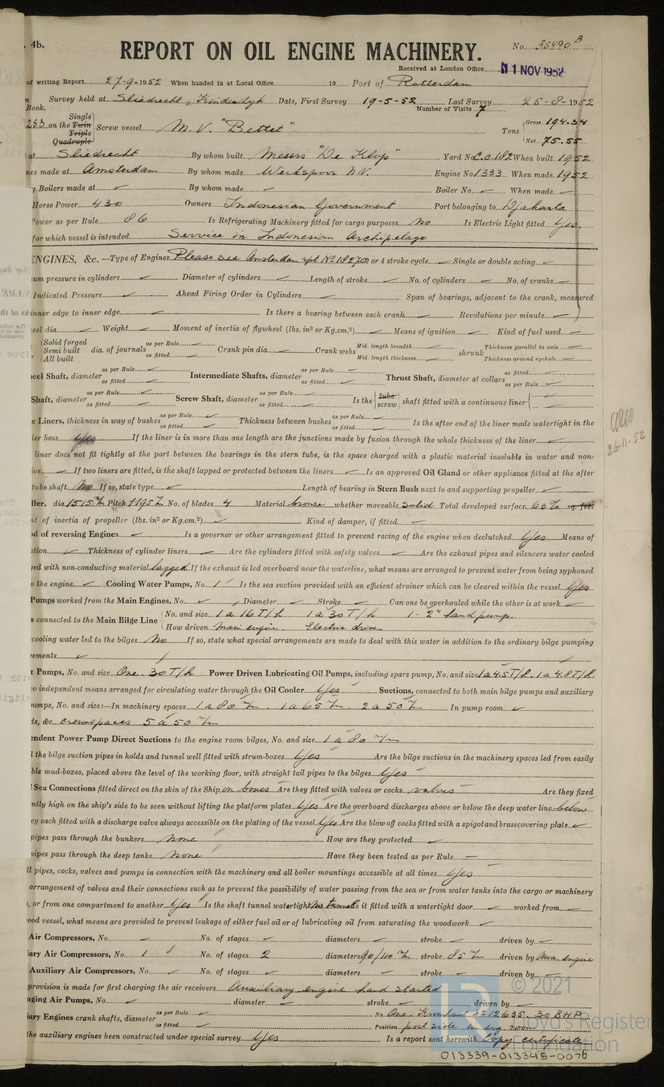 4b.
REPORT ON OIL ENGINE MACHINERY.
No. 35490 B
Received at London Office
11 NOV 1952
of writing Report 27-9-1952 When handed in at Local Office 19 Port of Rotterdam
Survey held at Sliedrecht, Kinderdijk Date, First Survey 19-5-52 Last Survey 25-8-1952
Book. Number of Visits 7
253 on the Single Twin Triple Quadruple Screw vessel M.V. "Bettet" Tons Gross 194.34 Net 75.55
at Sliedrecht By whom built Messrs "De Klop" Yard No. When built 1952
made at Amsterdam By whom made Werkspoor N.V. Engine No. 1333 When made 1952
Boilers made at By whom made Boiler No. When made
Horse Power 430 Owners Indonesian Government Port belonging to Djakarta
Power as per Rule 86 Is Refrigerating Machinery fitted for cargo purposes No Is Electric Light fitted Yes.
for which vessel is intended Service in Indonesian Archipelago
ENGINES, &c.—Type of Engines Please see Amsterdam rpt No 18270 or 4 stroke cycle Single or double acting
um pressure in cylinders Diameter of cylinders Length of stroke No. of cylinders No. of cranks
Indicated Pressure Ahead Firing Order in Cylinders Span of bearings, adjacent to the crank, measured
inner edge to inner edge Is there a bearing between each crank Revolutions per minute
eel dia Weight Moment of inertia of flywheel (lbs. in² or Kg.cm.²) Means of ignition Kind of fuel used
Solid forged Semi built All built dia. of journals as per Rule as fitted Crank pin dia Crank webs Mid. length breadth Mid. length thickness shrunk Thickness parallel to axis Thickness around eyehole
eel Shaft, diameter as per Rule as fitted Intermediate Shafts, diameter as per Rule as fitted Thrust Shaft, diameter at collars as fitted as per Rule
Shaft, diameter as per Rule as fitted Screw Shaft, diameter as per Rule as fitted Is the tube screw shaft fitted with a continuous liner
e Liners, thickness in way of bushes as per Rule as fitted Thickness between bushes as per Rule as fitted Is the after end of the liner made watertight in the
ler boss Yes If the liner is in more than one length are the junctions made by fusion through the whole thickness of the liner
liner does not fit tightly at the part between the bearings in the stern tube, is the space charged with a plastic material insoluble in water and non-
ive If two liners are fitted, is the shaft lapped or protected between the liners Is an approved Oil Gland or other appliance fitted at the after
tube shaft No If so, state type Length of bearing in Stern Bush next to and supporting propeller
ller, dia 1515 Pitch 1195 No. of blades 4 Material bronze whether moveable Solid Total developed surface 65% sq. feet
t of inertia of propeller (lbs. in² or Kg.cm.²) Kind of damper, if fitted
d of reversing Engines Is a governor or other arrangement fitted to prevent racing of the engine when declutched Yes Means of
tion Thickness of cylinder liners Are the cylinders fitted with safety valves Are the exhaust pipes and silencers water cooled
ed with non-conducting material Lagged If the exhaust is led overboard near the waterline, what means are arranged to prevent water from being syphoned
o the engine Cooling Water Pumps, No. 1 Is the sea suction provided with an efficient strainer which can be cleared within the vessel Yes
Pumps worked from the Main Engines, No. Diameter Stroke Can one be overhauled while the other is at work
s connected to the Main Bilge Line No. and size 1 a 16 T/h 1 a 30 T/h 1 - 2" hand pump.
How driven Main engine. Electric drive
cooling water led to the bilges No If so, state what special arrangements are made to deal with this water in addition to the ordinary bilge pumping
ements
t Pumps, No. and size One. 30 T/h Power Driven Lubricating Oil Pumps, including spare pump, No. and size 1 a 4.5 T/h. 1 a 4.8 T/h.
o independent means arranged for circulating water through the Oil Cooler Yes Suctions, connected to both main bilge pumps and auxiliary
umps, No. and size:—In machinery spaces 1 a 80 . 1 a 65 . 2 a 50 In pump room
ds, &c. crew spaces 5 a 50
ndent Power Pump Direct Suctions to the engine room bilges, No. and size 1 a 80
l the bilge suction pipes in holds and tunnel well fitted with strum-boxes Yes Are the bilge suctions in the machinery spaces led from easily
ble mud-boxes, placed above the level of the working floor, with straight tail pipes to the bilges Yes
Sea Connections fitted direct on the skin of the Ship on boxes Are they fitted with valves or cocks valves Are they fixed
ntly high on the ship's side to be seen without lifting the platform plates Yes Are the overboard discharges above or below the deep water line below
y each fitted with a discharge valve always accessible on the plating of the vessel Yes Are the blow off cocks fitted with a spigot and brass covering plate
pipes pass through the bunkers none How are they protected
pipes pass through the deep tanks none Have they been tested as per Rule
ll pipes, cocks, valves and pumps in connection with the machinery and all boiler mountings accessible at all times Yes
arrangement of valves and their connections such as to prevent the possibility of water passing from the sea or from water tanks into the cargo or machinery
, or from one compartment to another Yes Is the shaft tunnel watertight No tunnel Is it fitted with a watertight door worked from
ood vessel, what means are provided to prevent leakage of either fuel oil or of lubricating oil from saturating the woodwork
Air Compressors, No. No. of stages diameters stroke driven by
iary Air Compressors, No. 1 No. of stages 2 diameters 90/100 stroke 85 driven by Aux. engine
Auxiliary Air Compressors, No. No. of stages diameters stroke driven by
provision is made for first charging the air receivers Auxiliary engine hand started
nging Air Pumps, No. diameter stroke driven by
iary Engines crank shafts, diameter as per Rule as fitted No. One. 212635. 30 BHP Position port side in eng. room
the auxiliary engines been constructed under special survey Yes Is a report sent herewith Copy certificate
26-11-52
© 2021
Lloyd's Register
Foundation
013339-013345-0076